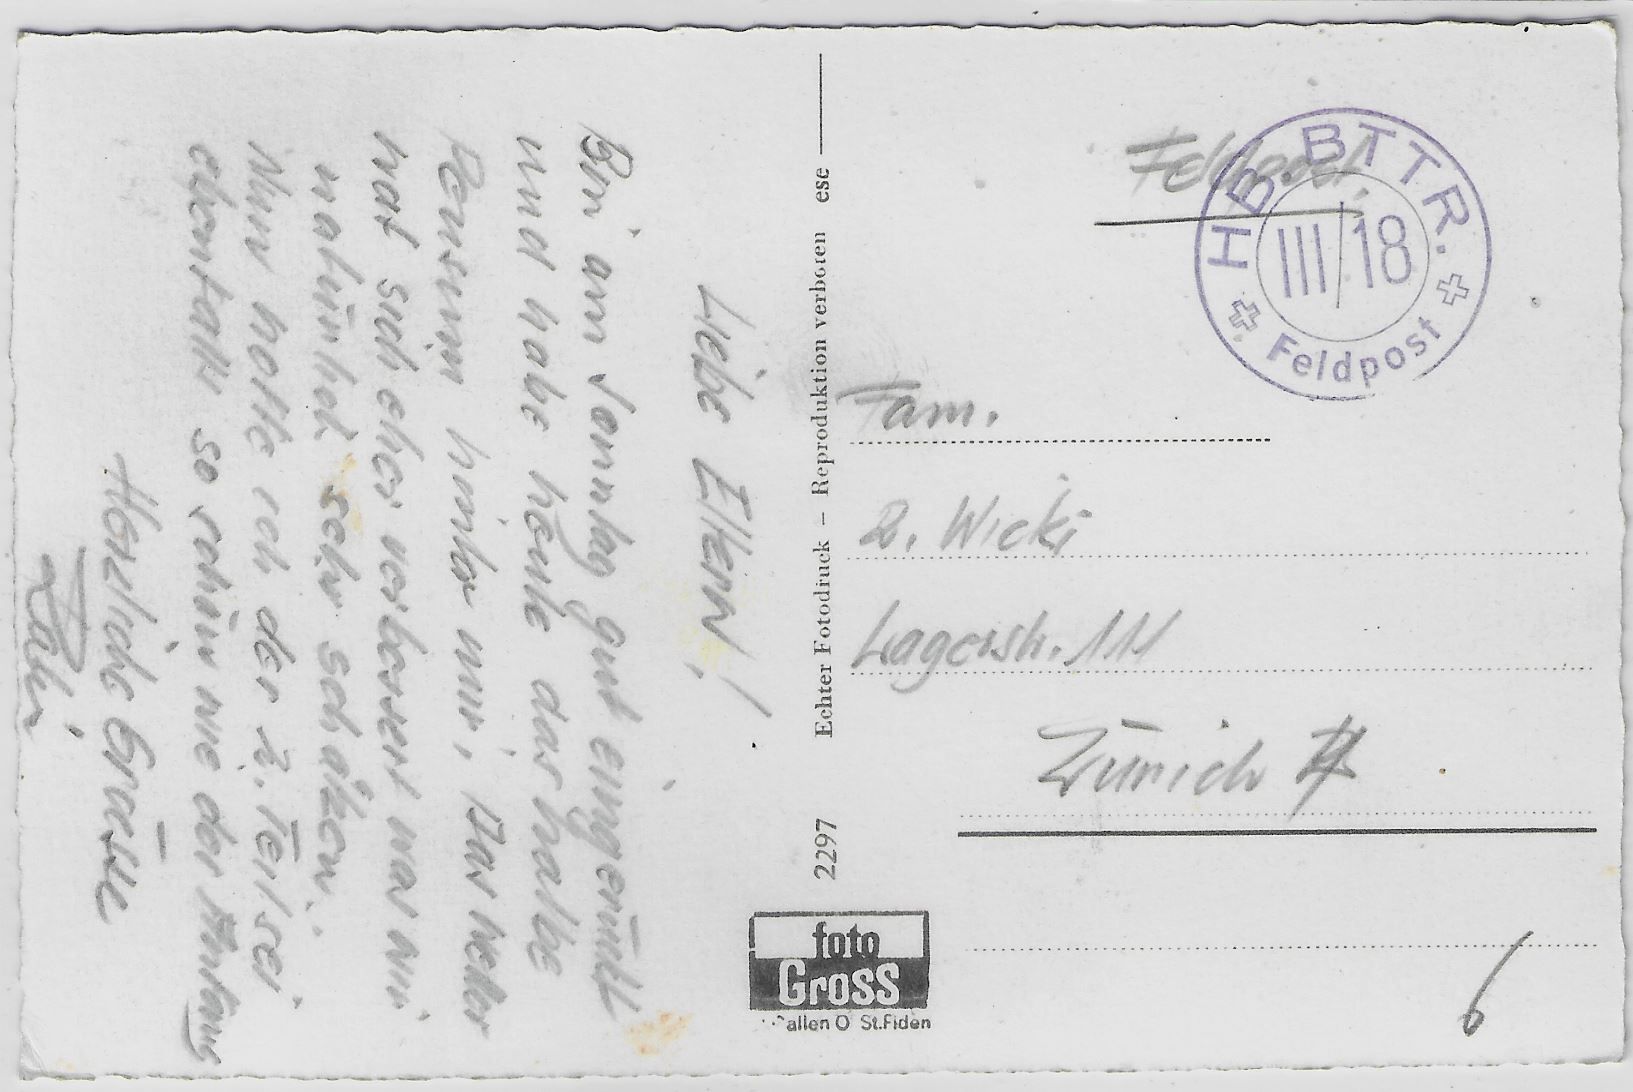 Liebe Eltern!
Bin am Samstag gut eingerückt
und habe heute das halbe
Pensum hinter mir. Das Wetter
hat sich eher verbessert was wir
natürlich sehr schätzen.
Nun hoffe ich der 2. Teil sei
ebenfalls so schön wie der Anfang
Herzliche Grüsse
Echter Fotodruck – Reproduktion verboten ese
2297
foto
Gross
allen O St.Fiden
Feldpost.
HB. BTTR.
III/18
Feldpost
Fam.
R. Wicki
Lagerstr. 111
Zürich 4
6